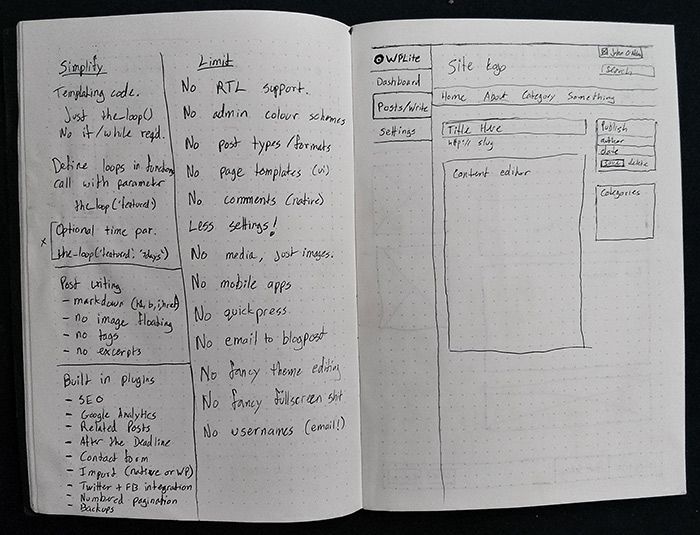 Simplify
Templating code.
Just the_loop()
No if/while reqd.
Define loops in functions
call with parameter
the_loop('featured')
x Optional time par.
the_loop('featured', '7days')
Post writing
- markdown (h1, b, i, href)
- no image floating
- no tags
- no excerpts
Built in plugins
- SEO
- Google Analytics
- Related Posts
- After the Deadline
- Contact form
- Import (native or WP)
- Twitter + FB integration
- Numbered pagination
- Backups
Limit
No RTL support.
No admin colour schemes
No post types/formats
No page templates (ui)
No comments (native)
Less settings!
No media, just images.
No mobile apps
No quickpress
No email to blogpost
No fancy theme editing
No fancy fullscreen shit
No usernames (email!)
WPLite
Dashboard
Posts/Write
Settings
Site Logo
John O'Nolan
Search
Home About Category Something
Title Here
http:// slug
Content editor
Publish
author
date
Save delete
Categories